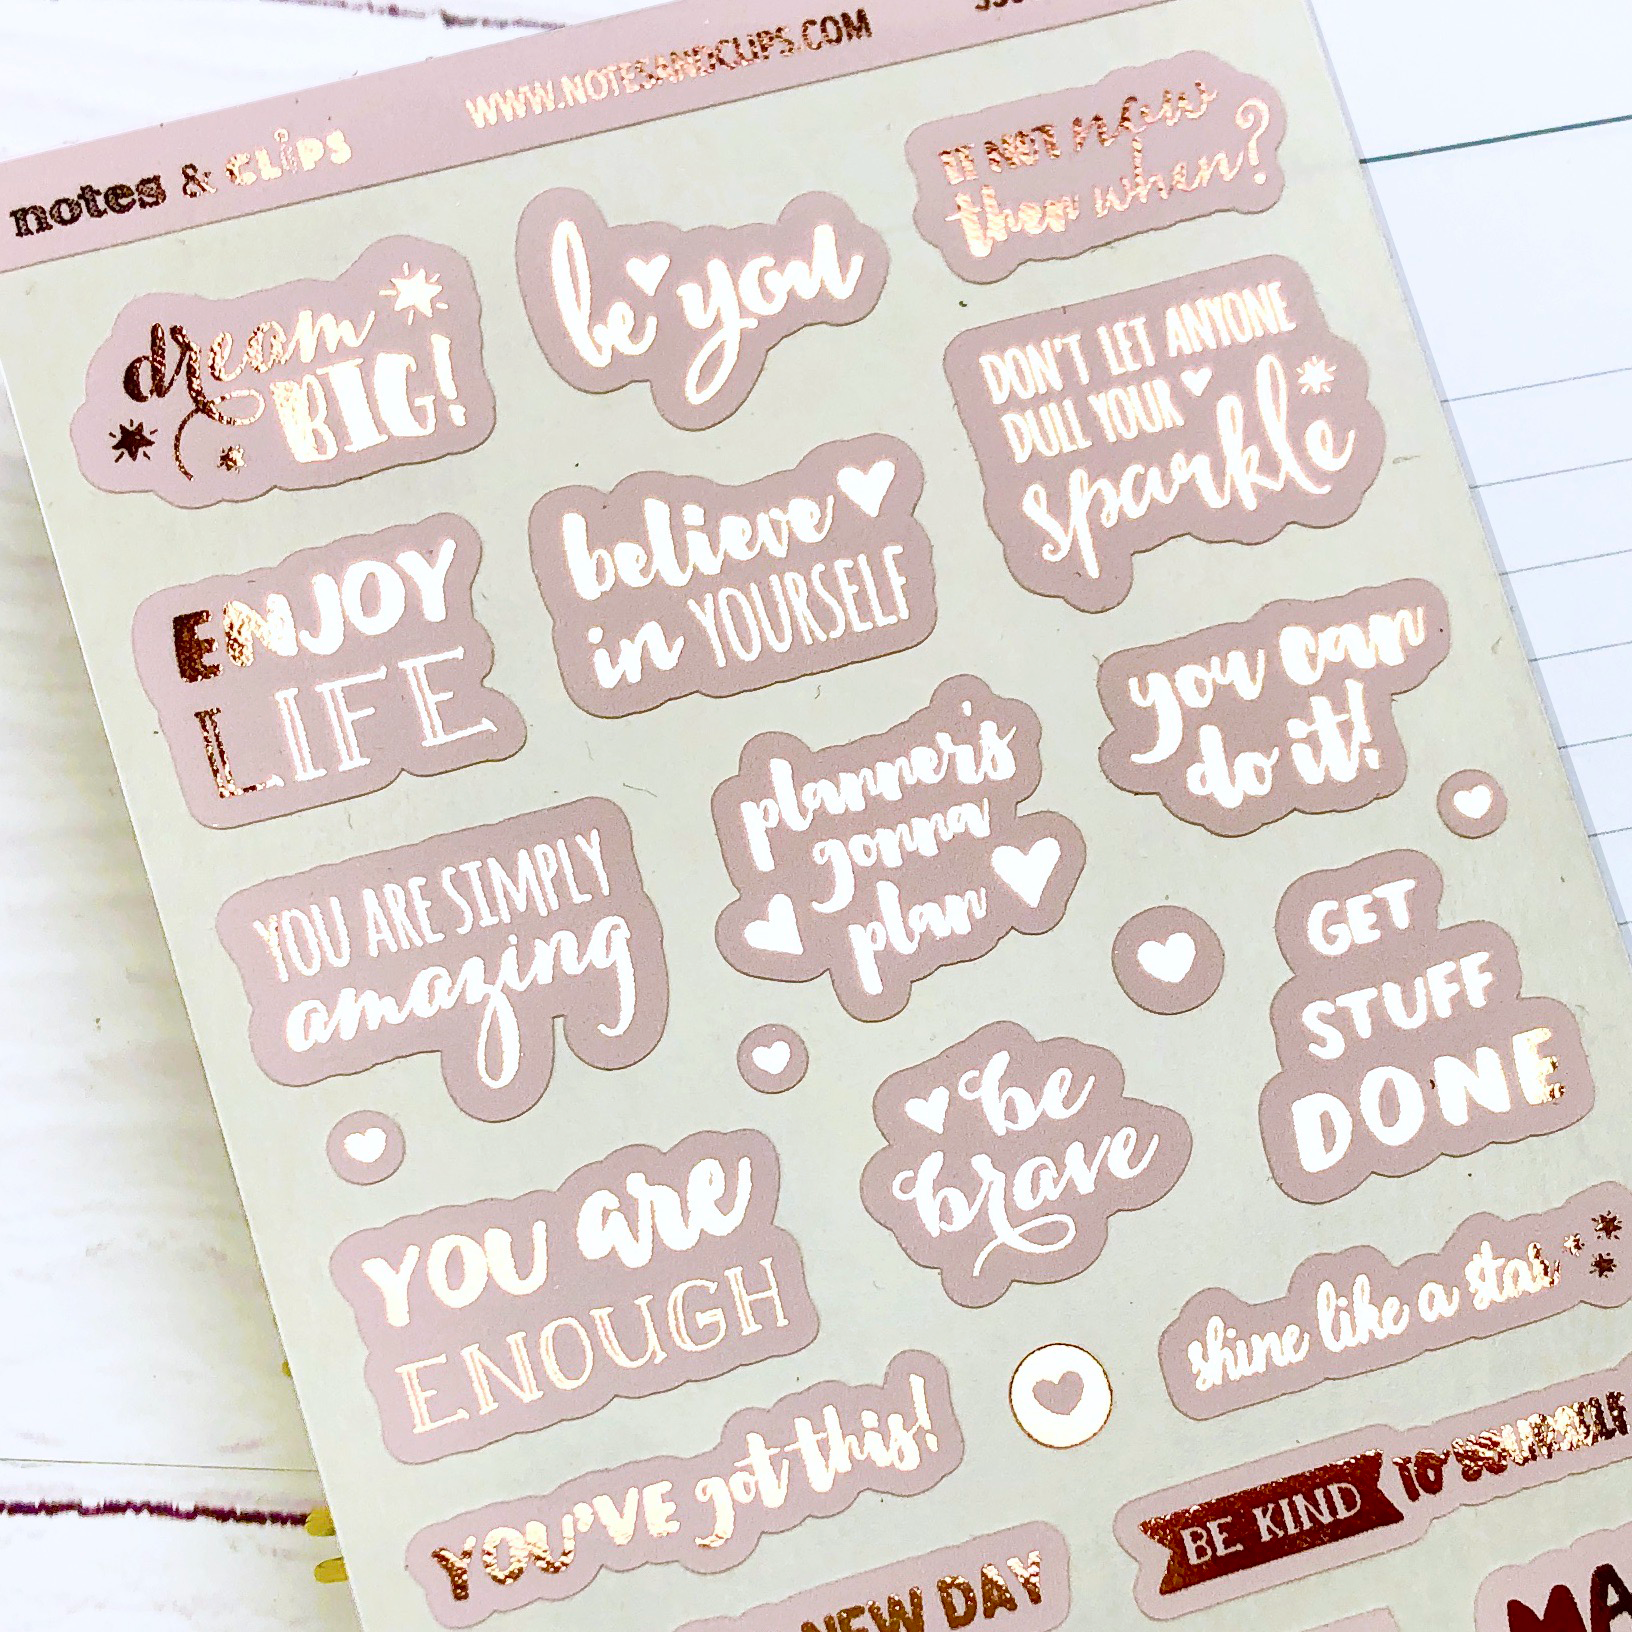 notes & CLiPS
WWW.NOTESANDCLIPS.COM
dream
BIG!
be you
IF NOT now
then when?
DON'T LET ANYONE
DULL YOUR
sparkle
ENJOY
LIFE
believe
in YOURSELF
you can
do it!
planner's
gonna
plan
YOU ARE SIMPLY
amazing
GET
STUFF
DONE
be
brave
YOU are
ENOUGH
shine like a star
YOU'VE got this!
BE KIND TO YOURSELF
NEW DAY